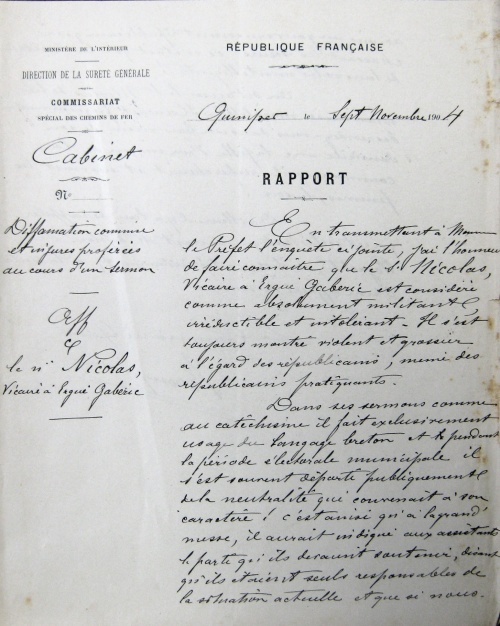 MINISTÈRE DE L'INTÉRIEUR
DIRECTION DE LA SURETÉ GÉNÉRALE
COMMISSARIAT
SPÉCIAL DES CHEMINS DE FER
Cabinet
N°
Diffamation commise
et injures proférées
au cours d'un sermon
Aff
le né Nicolas,
Vicaire à Ergué Gabéric
RÉPUBLIQUE FRANÇAISE
Quimper le Sept Novembre 1904
RAPPORT
En transmettant à
le Préfet l'enquête ci jointe, j'ai l'honneur
de faire connaître que le s. Nicolas,
Vicaire à Ergué Gaberic est considéré
comme absolument militant
irréductible et intolérant. Il s'est
toujours montré violent et grossier
à l'égard des républicains, même des
républicains pratiquants.
Dans ses sermons comme
au catéchisme il fait exclusivement
usage du langage breton et pendant
la période électorale municipale il
s'est souvent départé publiquement
de la neutralité qui convenait à son
caractère ; c'est ainsi qu'à la grand'
messe, il aurait indiqué aux assistants
le parti qu'ils devaient soutenir, disant
qu'ils étaient seuls responsables de
la situation actuelle et que si nous.